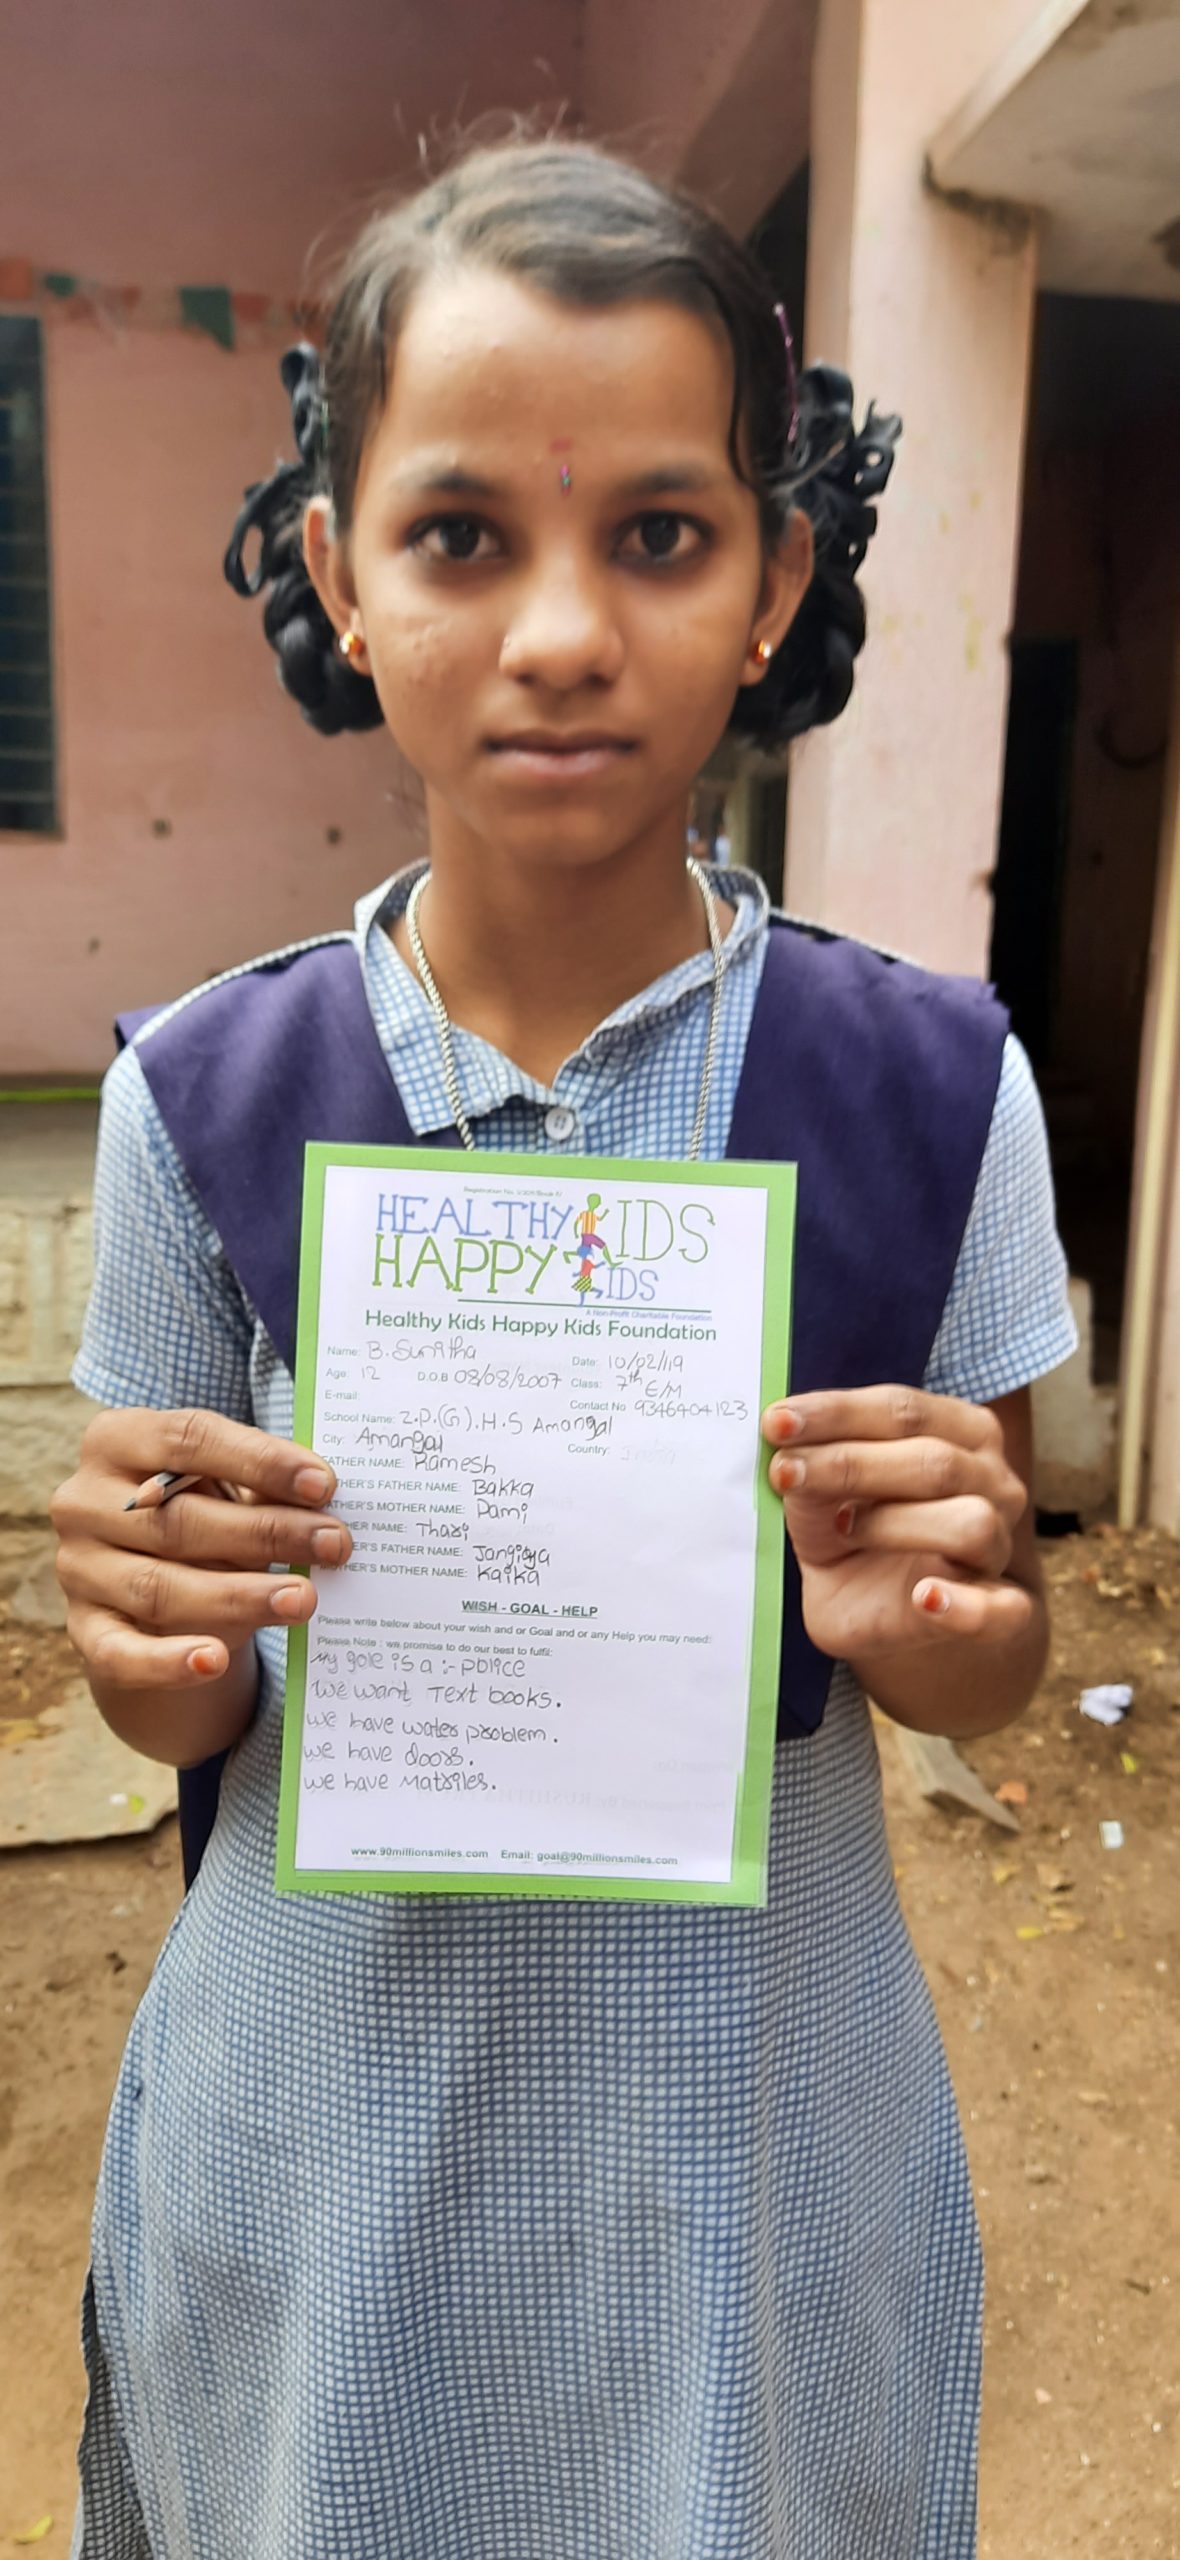 Registration No. 1/2015 Book IV
HEALTHY KIDS
HAPPY KIDS
A Non-Profit Charitable Foundation
Healthy Kids Happy Kids Foundation
Name: B. Sunitha Date: 10/02/19
Age: 12 D.O.B 08/08/2007 Class: 7th E/M
E-mail: Contact No 9346404123
School Name: Z.P.(G).H.S Amangal
City: Amangal Country: India
FATHER NAME: Ramesh
THER'S FATHER NAME: Bakka
ATHER'S MOTHER NAME: Dami
HER NAME: Thari
ER'S FATHER NAME: Jangiya
OTHER'S MOTHER NAME: Kaika
WISH - GOAL - HELP
Please write below about your wish and or Goal and or any Help you may need:
Please Note : we promise to do our best to fulfil:
My gole is a :- police
We want Text books.
we have water problem.
we have doors.
we have Matriles.
www.90millionsmiles.com Email: goal@90millionsmiles.com